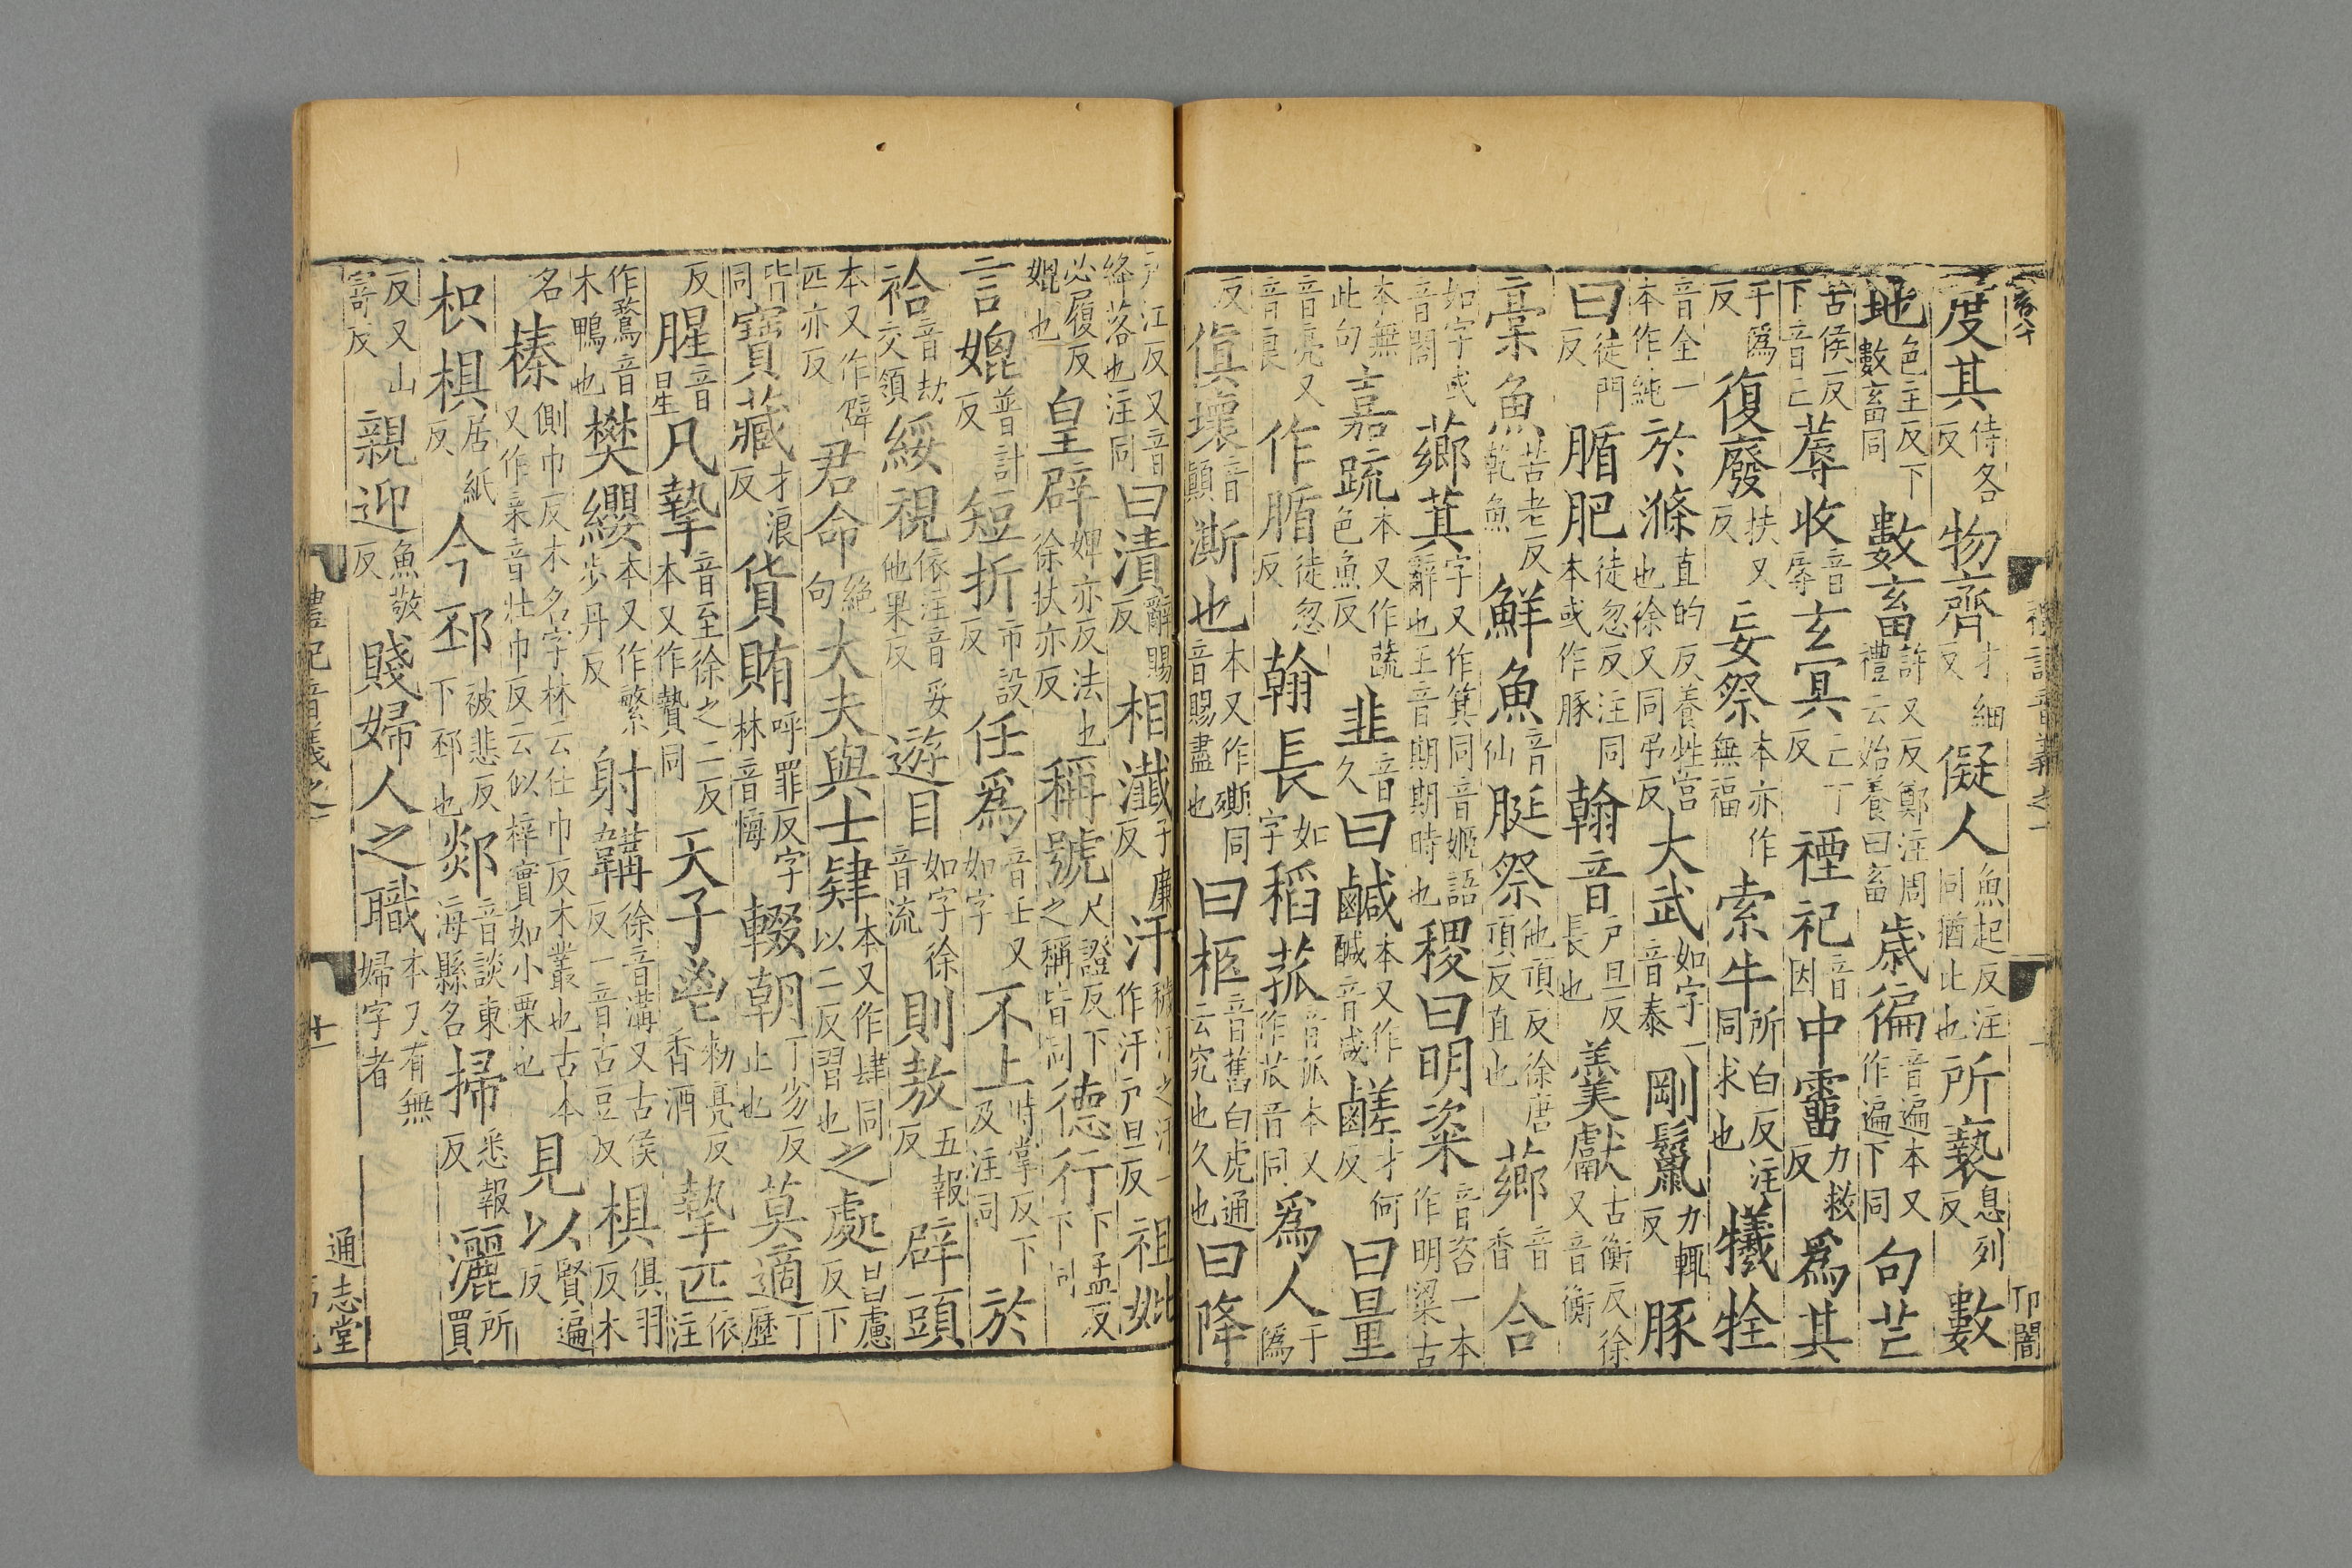 禮記音義之一 卬閣
度其侍各反物齊才細反儗人魚起反注同猶此也所褻息列反數
地色主反下數畜同數畜許又反鄭注周禮云始養曰畜歲徧音遍本又作遍下同句芒
古侯反下音亡蓐收音辱玄冥亡丁反禋祀音因中霤力救反爲其
于爲反復廢扶又反妄祭本亦作無福索牛所白反注同求也犧牷
音全一本作純於滌直的反養牲宮也徐又同弔反大武如字一音泰剛鬣力輒反豚
曰徒門反腯肥徒忽反注同本或作豚翰音戶旦反長也羹獻古衡反徐又音衡
槀魚苦老反乾魚鮮魚音仙脡祭他頂反徐唐頂反直也薌音香合
如字或音閤薌萁字又作箕同音姬語辭也王音期期時也稷曰明粢音咨一本作明粱古
本無此句嘉蔬本又作蔬色魚反韭音久曰鹹本又作醎音咸鹺才何反曰量
音亮又音良作腯徒忽反翰長如字稻菰音孤本又作苽音同爲人于僞
反傎壞音顛澌也本又作同音賜盡也曰柩音舊白虎通云究也久也曰降
戶江反又音絳落也注同曰漬辭賜反相瀸子廉反汙穢汙之汙一作汗戶旦反祖妣
必履反媲也皇辟婢亦反法也徐扶亦反稱號尺證反下之稱皆同德行下孟反下同
言媲普計反短折市設反任爲音壬又如字不上時掌反下及注同於
袷音劫交領綏視依注音妥他果反遊目如字徐音流則敖五報反辟頭
本又作僻匹亦反君命絕句大夫與士肄本又作肆同以二反習也之處昌慮反下
皆同寶藏才浪反貨賄呼罪反字林音悔輟朝丁劣反止也莫適丁歷
反腥音星凡摯音至徐之二反本又作贄同天子鬯勑亮反香酒摯匹依注
作鶩音木鴨也樊纓本又作繁步丹反射韝徐音溝又古侯反一音古豆反椇俱羽反木
名榛側巾反木名字林云仕巾反木叢也古本又作亲音壯巾反云似梓實如小栗也見以賢遍反
枳椇居紙反今邳被悲反下邳也郯音談東海縣名掃悉報反灑所買
反又山寄反親迎魚敬反賤婦人之職本又有無婦字者
禮記音義之一 十一 通志堂